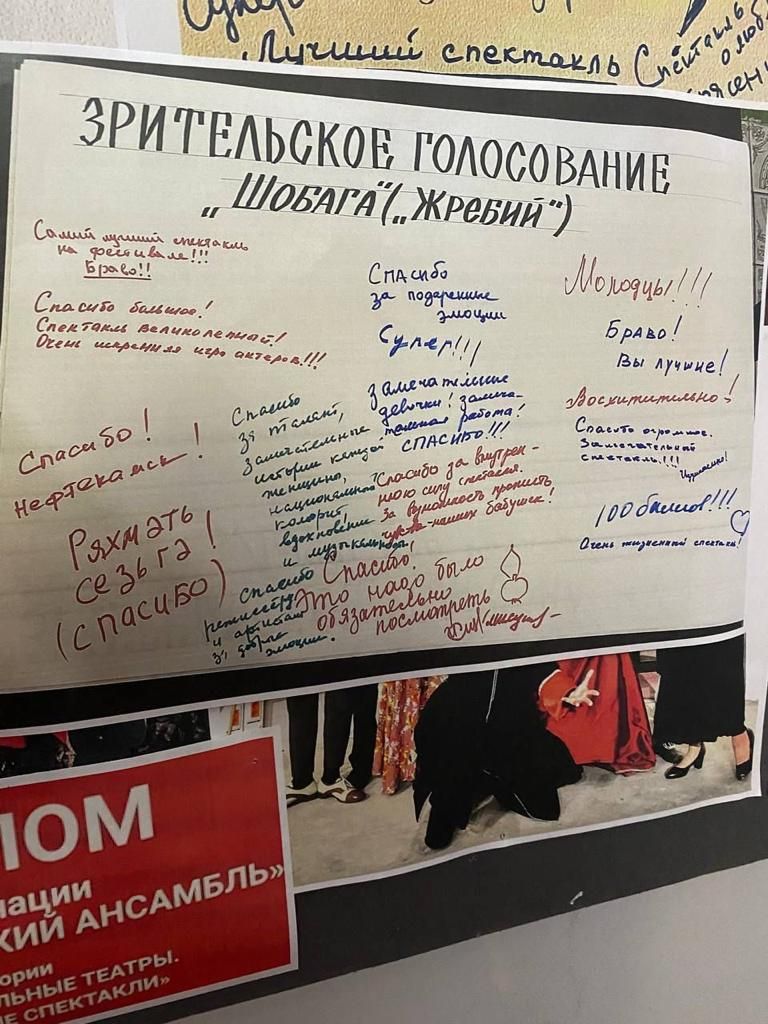 Лучший спектакль
Спектакль
о люб
ЗРИТЕЛЬСКОЕ ГОЛОСОВАНИЕ
„ШОБАГА" („ЖРЕБИЙ")
Самый лучший спектакль
на фестивале!!!
Браво!!
Спасибо большое!
Спектакль великолепный!
Очень искренняя игра актеров!!!
Спасибо!
Нефтекамск!
Ряхмәть
сезьгә!
(спасибо)
Спасибо
за талант,
замечательные
истории каждой
женщины,
национальный
колорит,
вдохновение
и музыкальность,
спасибо
режиссёру
и артистам
за добрые
эмоции.
Спасибо
за подаренные
эмоции
Супер!!!
Замечательные
девочки! Замеча-
тельная работа!
СПАСИБО!!!
Спасибо за внутрен-
нюю силу спектакля.
За возможность прожить
чувства наших бабушек!
Спасибо!
Это надо было
обязательно
посмотреть
Молодцы!!!
Браво!
Вы лучшие!
Восхитительно!
Спасибо огромное.
Замечательный
спектакль!!!
100 баллов!!!
Очень жизненный спектакль!
ЛОМ
нации
КИЙ АНСАМБЛЬ»
ории
ЛЬНЫЕ ТЕАТРЫ.
Е СПЕКТАКЛИ»